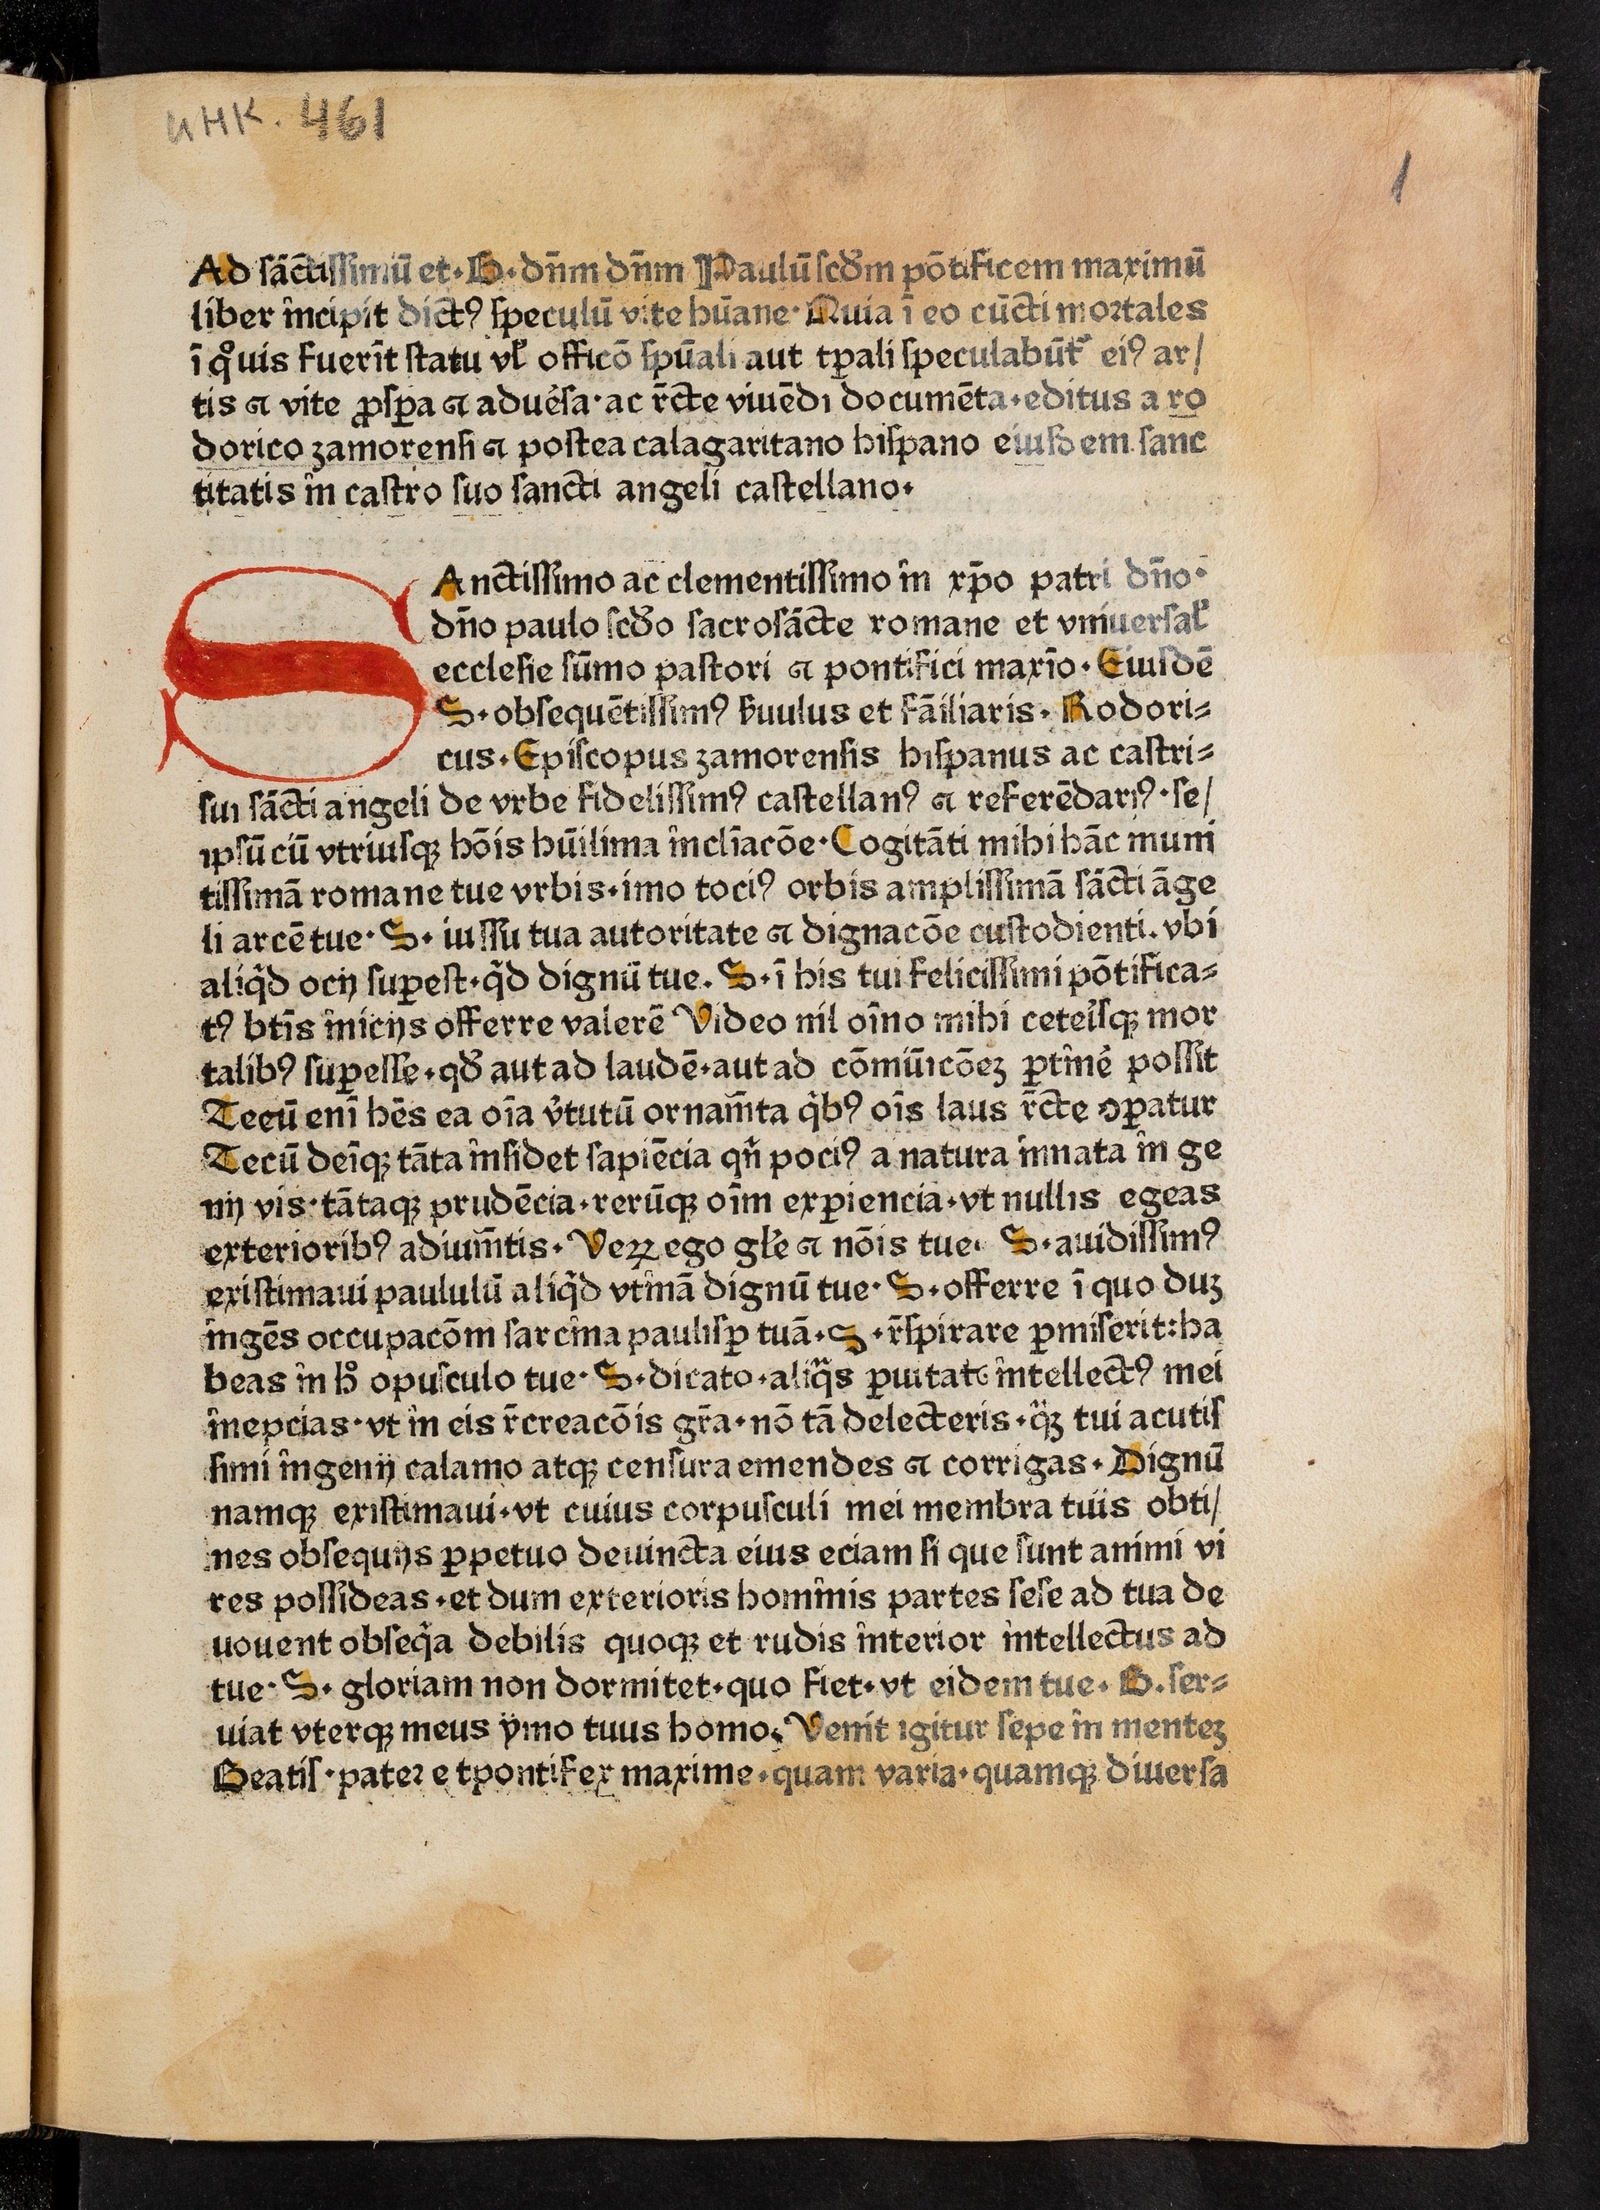 инк. 461
1
Ad sāctissimū et · B · dn̄m dn̄m Paulū scd̄m pōtificem maximū
liber incipit dictꝰ speculū vite hūane · Quia ī eo cūcti mortales
ī qͦuis fuerīt statu vl̛ officō spūali aut tꝑali speculabūt᷑ eiꝰ ar/
tis ⁊ vite ꝓsꝑa ⁊ aduėsa · ac r̄cte viuēdi documēta · editus a ro
dorico zamorensi ⁊ postea calagaritano hispano eiusdem sanc
titatis in castro suo sancti angeli castellano ·
SAnctissimo ac clementissimo in xp̄o patri dn̄o ·
dn̄o paulo scd̄o sacrosācte romane et vniuersal̛
ecclesie sūmo pastori ⁊ pontifici maxīo · Eiusdē
S · obsequētissimꝰ ẜuulus et fāiliaris · Rodori⸗
cus · Episcopus zamorensis hispanus ac castri⸗
sui sācti angeli de vrbe fidelissimꝰ castellanꝰ ⁊ referēdariꝰ · se/
ipsū cū vtriusqꝫ hōis hūilima inclīacōe · Cogitāti mihi hāc muni
tissimā romane tue vrbis · imo tociꝰ orbis amplissimā sācti āge
li arcē tue · S · iussu tua autoritate ⁊ dignacōe custodienti . vbi
aliqͥd ocij suꝑest · qͥd dignū tue . S · ī his tui felicissimi pōtifica⸗
tꝰ btīs inicijs offerre valerē Video nil oīno mihi ceteīsqꝫ mor
talibꝰ suꝑesse · qd̛ aut ad laudē · aut ad cōmūicōeꝫ ꝑtinė possit
Tecū enī hēs ea oīa v̓tutū ornam̄ta qͥbꝰ oīs laus r̄cte ꝯꝑatur
Tecū deīqꝫ tāta insidet sapiēcia qn̄ pociꝰ a natura innata in ge
nij vis · tātaqꝫ prudēcia · rerūqꝫ oīm exꝑiencia · vt nullis egeas
exterioribꝰ adium̄tis · Veꝝ ego gl̛e ⁊ nōis tue · S · auidissimꝰ
existimaui paululū aliqͥd vtinā dignū tue · S · offerre ī quo duꝫ
ingēs occupacōm sarcina paulisꝑ tuā · S · r̄spirare ꝑmiserit : ha
beas in hͦ opusculo tue · S · dicato · aliqͣs ꝑuitatꝭ intellectꝰ mei
inepcias · vt in eis r̄creacōis gr̄a · nō tā delecteris · qͣꝫ tui acutis
simi ingenij calamo atqꝫ censura emendes ⁊ corrigas · Dignū
namqꝫ existimaui · vt cuius corpusculi mei membra tuis obti/
nes obsequijs ꝑpetuo deuincta eius eciam si que sunt animi vi
res possideas · et dum exterioris hominis partes sese ad tua de
uouent obseqͥa debilis quoqꝫ et rudis interior intellectus ad
tue · S · gloriam non dormitet · quo fiet · vt eidem tue · B . ser⸗
uiat vterqꝫ meus ÿmo tuus homo · Venit igitur sepe in menteꝫ
Beatis · pater e tpontifex maxime · quam varia · quamqꝫ diuersa